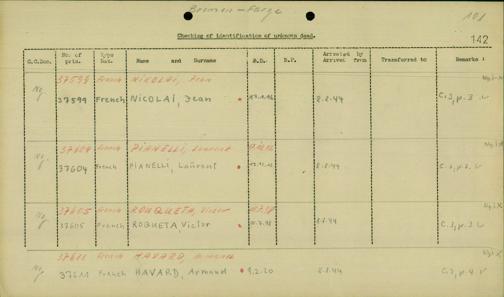 Bremen-Farge
101
Checking of identification of unknown dead.
142
C.C.Doc. No. of pris. Type Nat. Name and Surname B.D. B.P. Arrested by Arrived from Transferred to Remarks
37599 French NICOLAI, Jean
Ng 37599 French NICOLAI, Jean 8.8.44 C.3, p.3
37604 French PIANELLI, Laurent
Ng 37604 French PIANELLI, Laurent 8.8.44
37605 French ROUQUETA, Victor
Ng 37605 French ROQUETA Victor 8.8.44 C.3, p.3
37611 French HAVARD, Armand
Ng 37611 French HAVARD, Armand 9.2.20 8.8.44 C.3, p.4